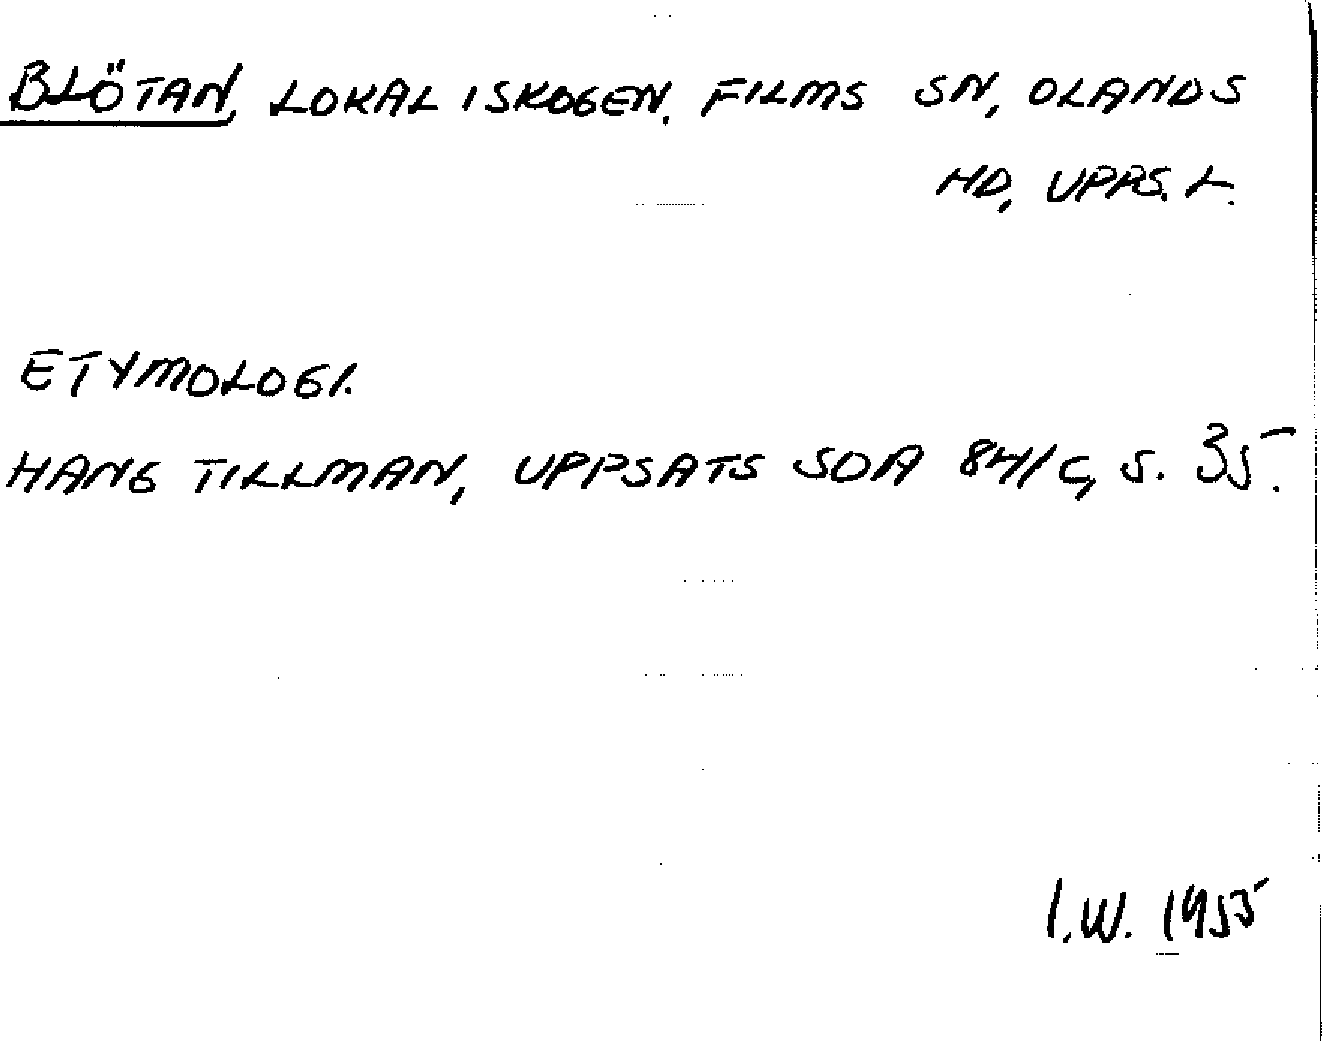 BLÖTAN, LOKAL I SKOGEN. FILMS SN, OLANDS
HD, UPPS. L.
ETYMOLOGI.
HANS TILLMAN, UPPSATS SOA 84/C, S. 35.
I.W. 1955